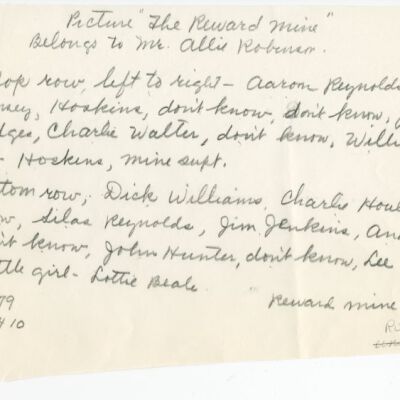 Picture "The Reward Mine"
Belongs to Mr. Allie Robinson.
top row, left to right - Aaron Reynolds
sey, Hoskins, don't know, don't know, J
dges, Charlie Walter, don't know, Willi
- Hoskins, mine supt.
tom row, Dick Williams, Charlie Houl
w, Silas Reynolds, Jim Jenkins, An
't know, John Hunter, don't know, Lee
ttle girl - Lottie Beale
79
10
Reward mine